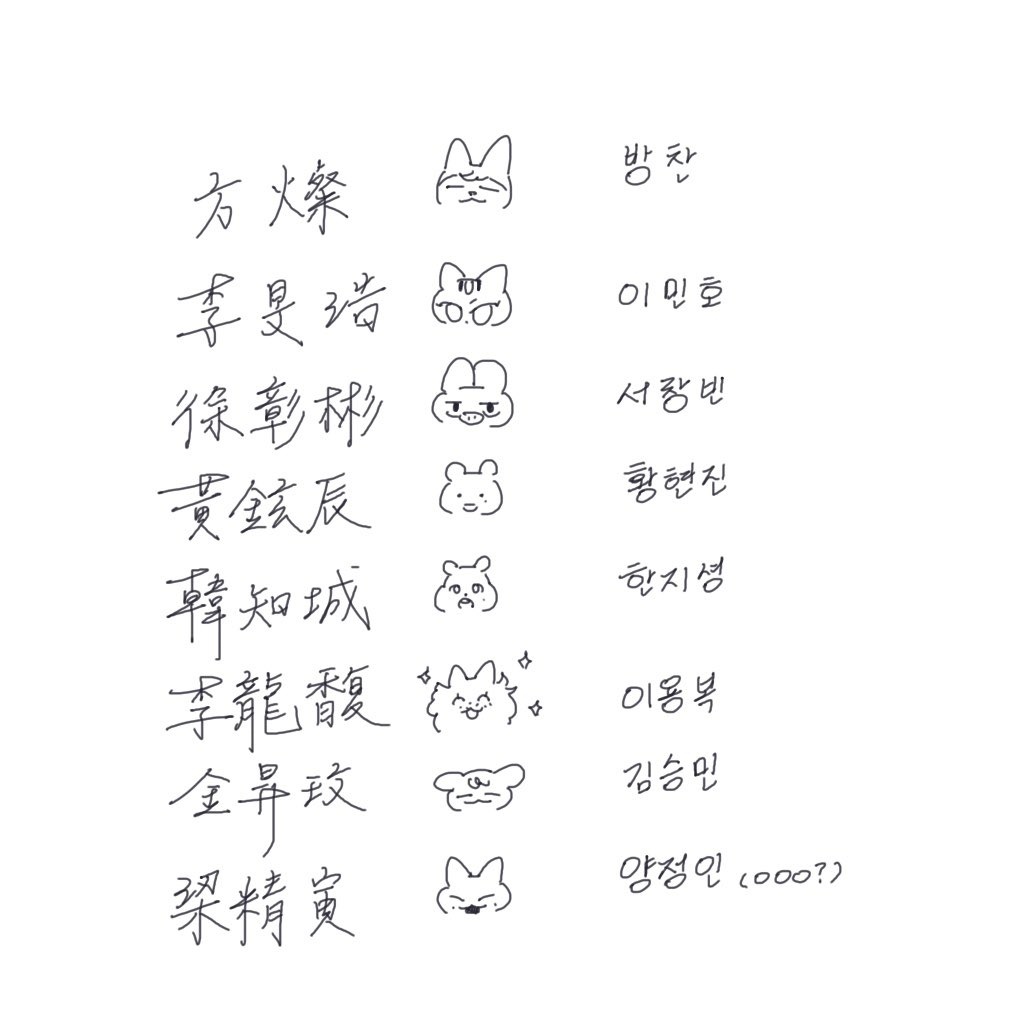 方燦 방찬
李旻浩 이민호
徐彰彬 서창빈
黃鉉辰 황현진
韓知城 한지성
李龍馥 이용복
金昇玟 김승민
梁精寅 양정인 (ㅇㅇㅇ?)